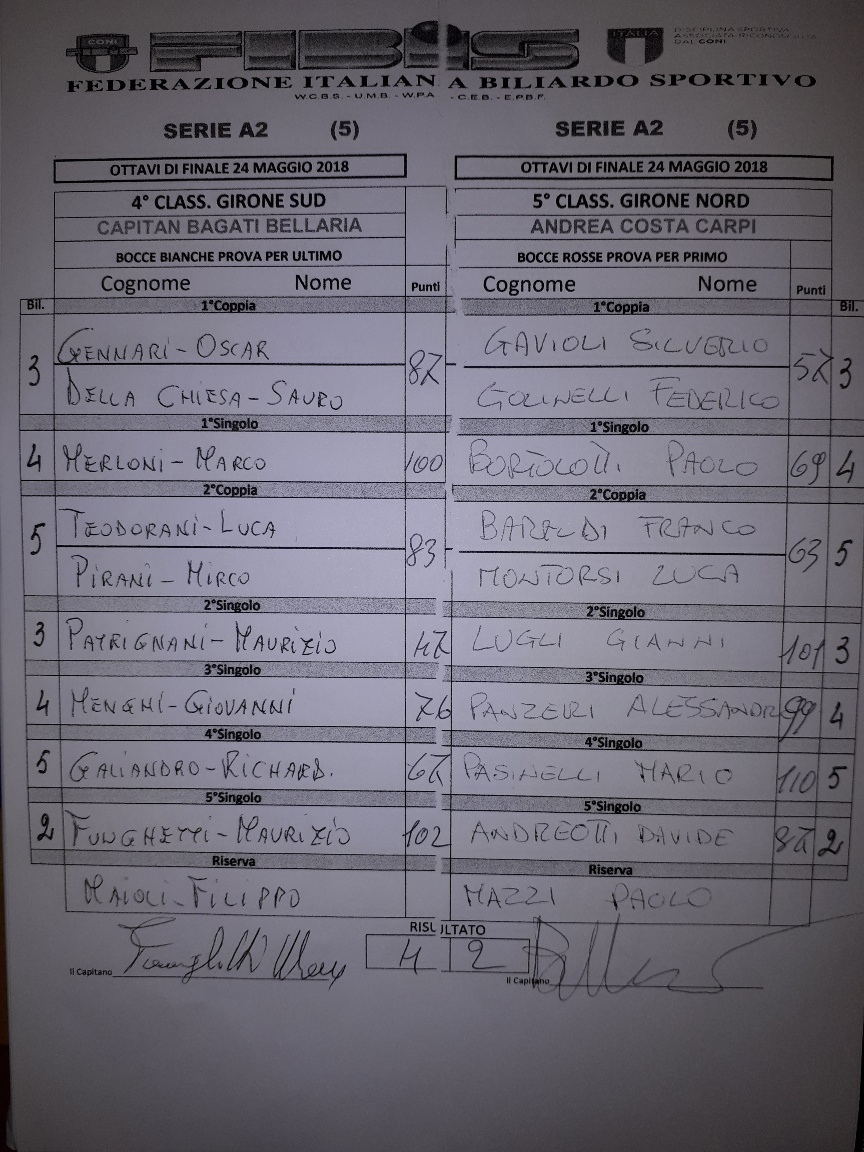 CONI FIBIS ITALIA DISCIPLINA SPORTIVA
ASSOCIATA RICONOSCIUTA
DAL CONI
FEDERAZIONE ITALIANA BILIARDO SPORTIVO
W.C.B.S. - U.M.B. - W.P.A. - C.E.B. - E.P.B.F.
SERIE A2 (5) SERIE A2 (5)
OTTAVI DI FINALE 24 MAGGIO 2018 OTTAVI DI FINALE 24 MAGGIO 2018
4° CLASS. GIRONE SUD 5° CLASS. GIRONE NORD
CAPITAN BAGATI BELLARIA ANDREA COSTA CARPI
BOCCE BIANCHE PROVA PER ULTIMO BOCCE ROSSE PROVA PER PRIMO
Cognome Nome Punti Cognome Nome Punti
Bil. 1°Coppia 1°Coppia Bil.
GENNARI - OSCAR GAVIOLI SILVERIO
3 87 57 3
DELLA CHIESA - SAURO GOLINELLI FEDERICO
1°Singolo 1°Singolo
4 MERLONI - MARCO 100 BORTOLOTTI PAOLO 69 4
2°Coppia 2°Coppia
TEODORANI - LUCA BARALDI FRANCO
5 83 63 5
PIRANI - MIRCO MONTORSI LUCA
2°Singolo 2°Singolo
3 PATRIGNANI - MAURIZIO 47 LUGLI GIANNI 101 3
3°Singolo 3°Singolo
4 MENGHI - GIOVANNI 76 PANZERI ALESSANDR 99 4
4°Singolo 4°Singolo
5 GALIANDRO - RICHARD. 67 PASINELLI MARIO 110 5
5°Singolo 5°Singolo
2 FUNGHETTI - MAURIZIO 102 ANDREOTTI DAVIDE 87 2
Riserva Riserva
MAIOLI - FILIPPO MAZZI PAOLO
RISULTATO
4 2
Il Capitano Il Capitano